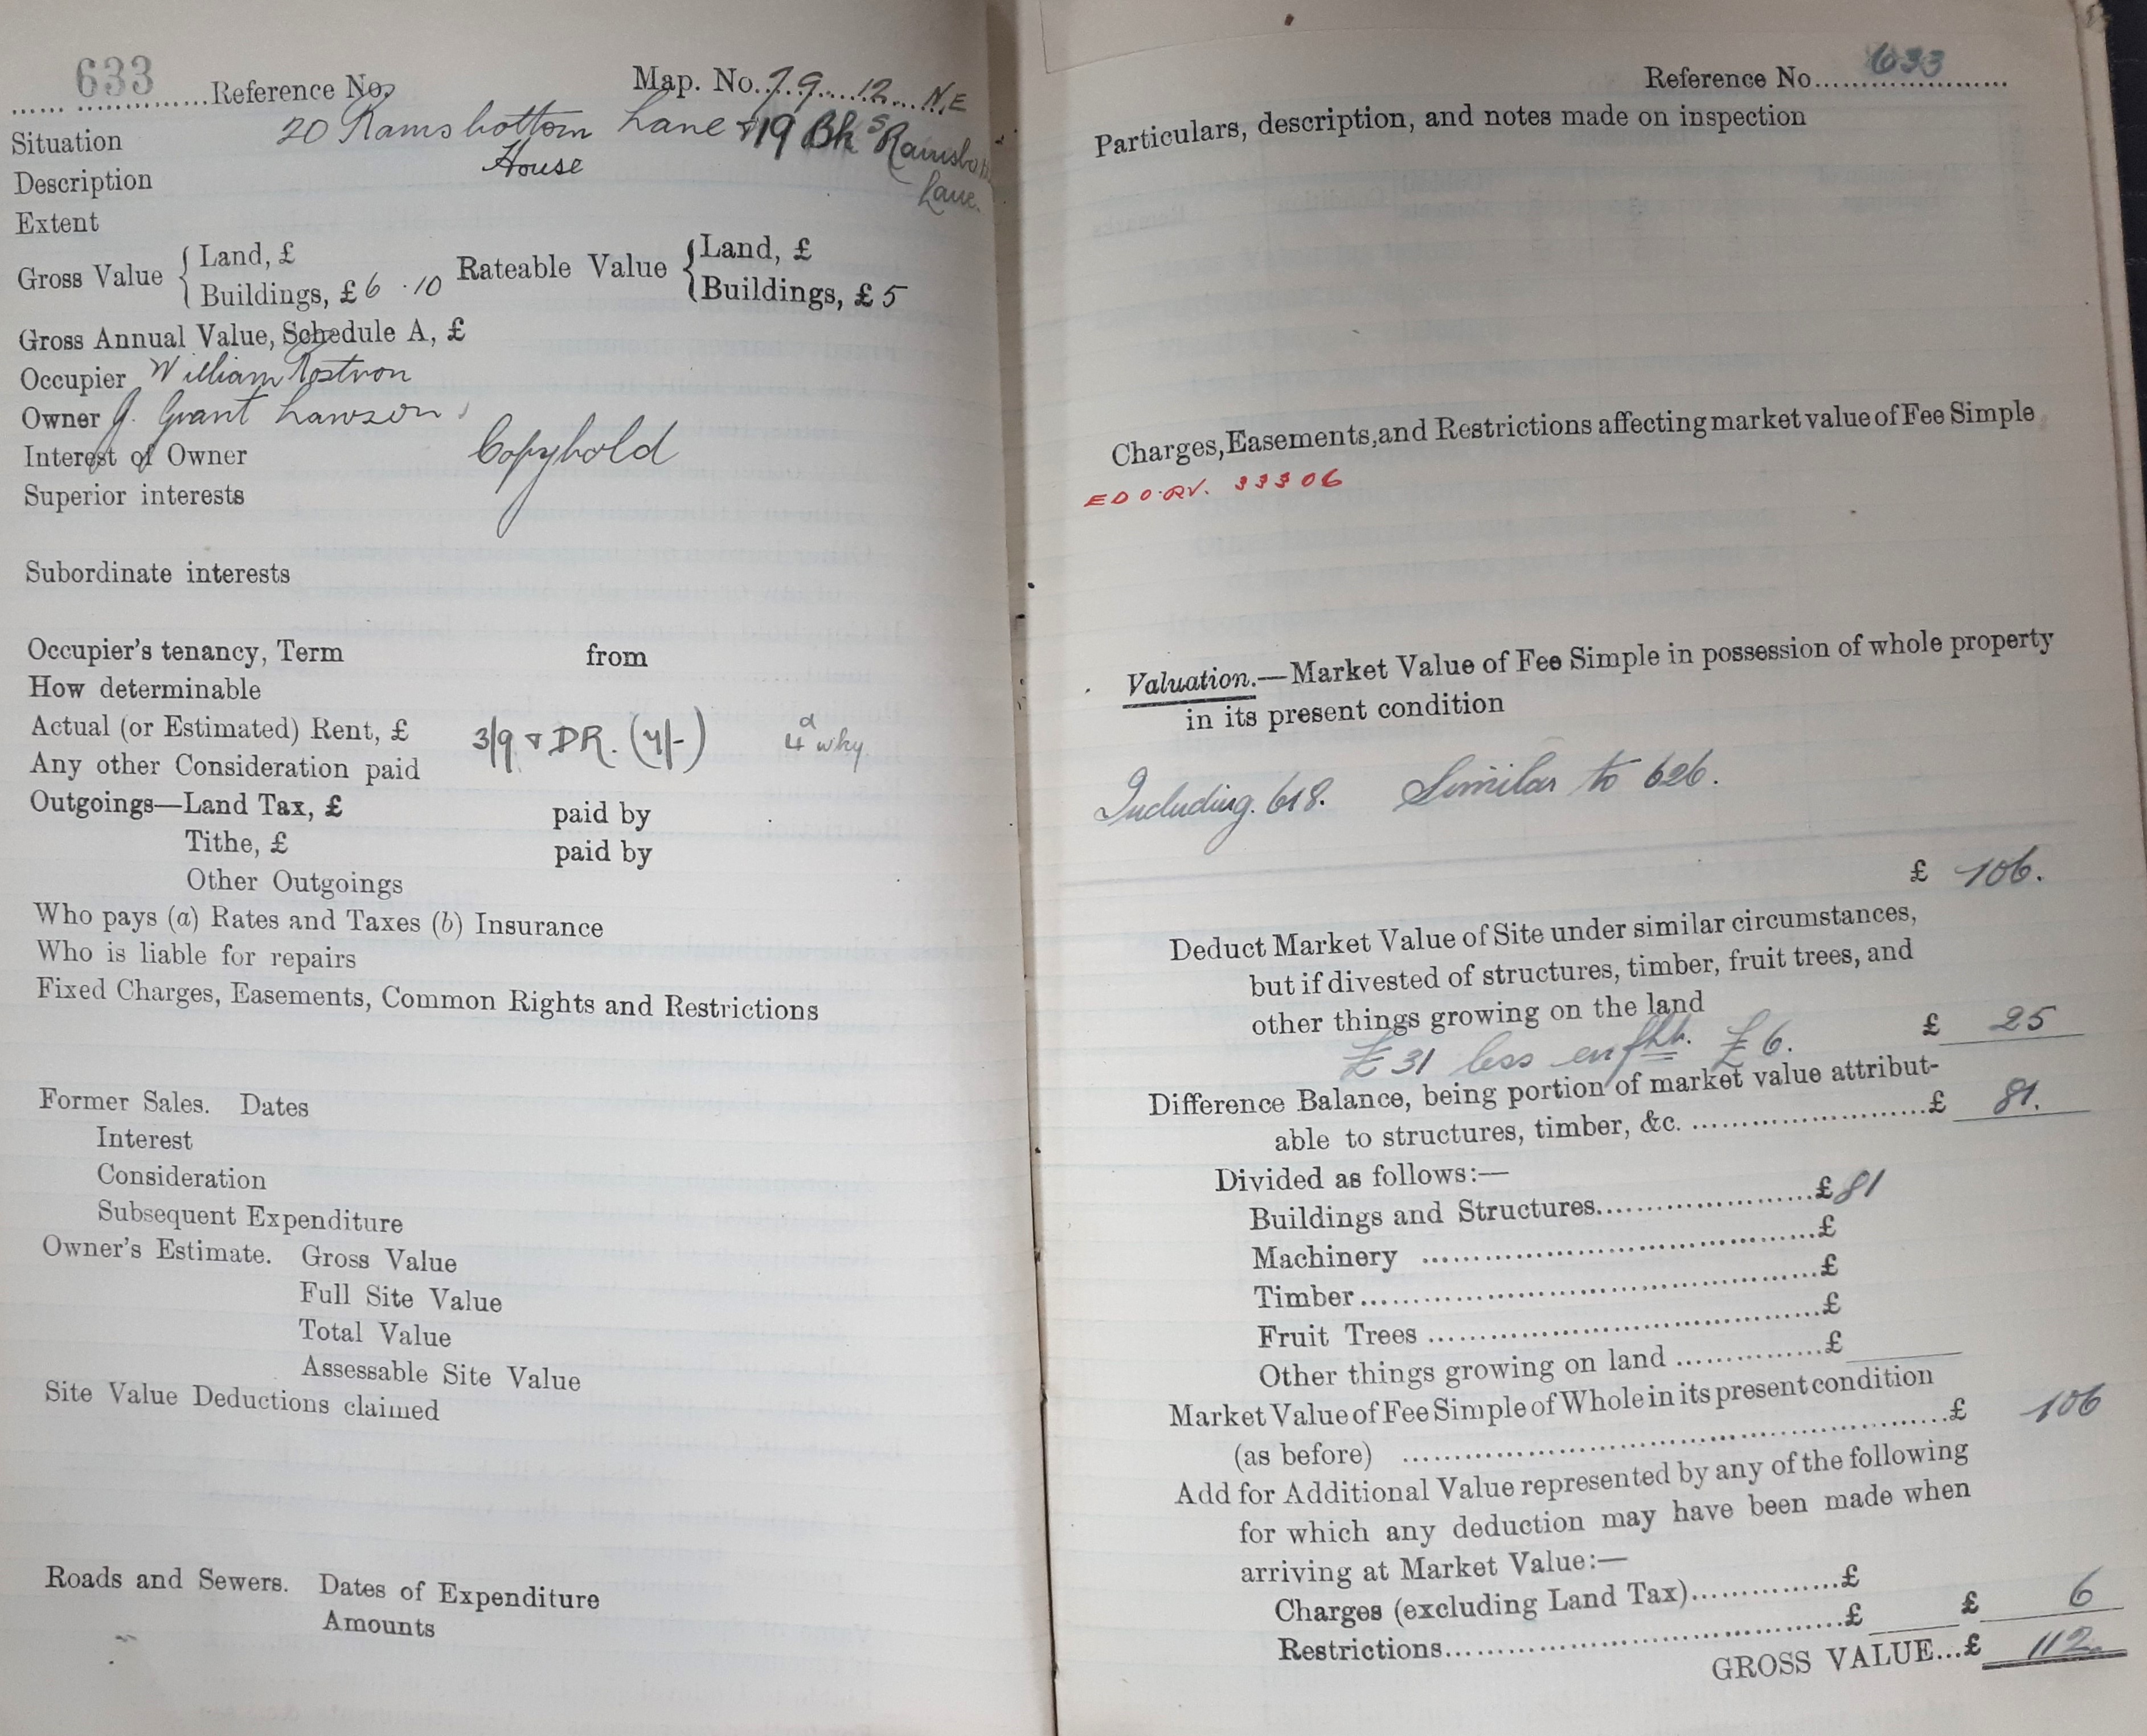 633 Reference No. Map. No. 79 12 N.E
Situation 20 Ramsbottom Lane + 19 Bk S Ramsbottom
Description House Lane.
Extent
Gross Value { Land, £ Rateable Value { Land, £
Buildings, £ 6 . 10 Buildings, £ 5
Gross Annual Value, Schedule A, £
Occupier William Rostron
Owner J. Grant Lawson
Interest of Owner Copyhold
Superior interests
Subordinate interests
Occupier's tenancy, Term from
How determinable
Actual (or Estimated) Rent, £ 3/9 + DR. (4/-) 4d
Any other Consideration paid
Outgoings—Land Tax, £ paid by
Tithe, £ paid by
Other Outgoings
Who pays (a) Rates and Taxes (b) Insurance
Who is liable for repairs
Fixed Charges, Easements, Common Rights and Restrictions
Former Sales. Dates
Interest
Consideration
Subsequent Expenditure
Owner's Estimate. Gross Value
Full Site Value
Total Value
Assessable Site Value
Site Value Deductions claimed
Roads and Sewers. Dates of Expenditure
Amounts
Reference No. 633
Particulars, description, and notes made on inspection
Charges, Easements, and Restrictions affecting market value of Fee Simple
33306
Valuation.—Market Value of Fee Simple in possession of whole property
in its present condition
Including 618. Similar to 626.
£ 106.
Deduct Market Value of Site under similar circumstances,
but if divested of structures, timber, fruit trees, and
other things growing on the land £ 25
£31 less enfht. £6.
Difference Balance, being portion of market value attribut-
able to structures, timber, &c. £ 81.
Divided as follows:—
Buildings and Structures £ 81
Machinery £
Timber £
Fruit Trees £
Other things growing on land £
Market Value of Fee Simple of Whole in its present condition
(as before) £ 106
Add for Additional Value represented by any of the following
for which any deduction may have been made when
arriving at Market Value:—
Charges (excluding Land Tax) £
Restrictions £ £ 6
GROSS VALUE...£ 112